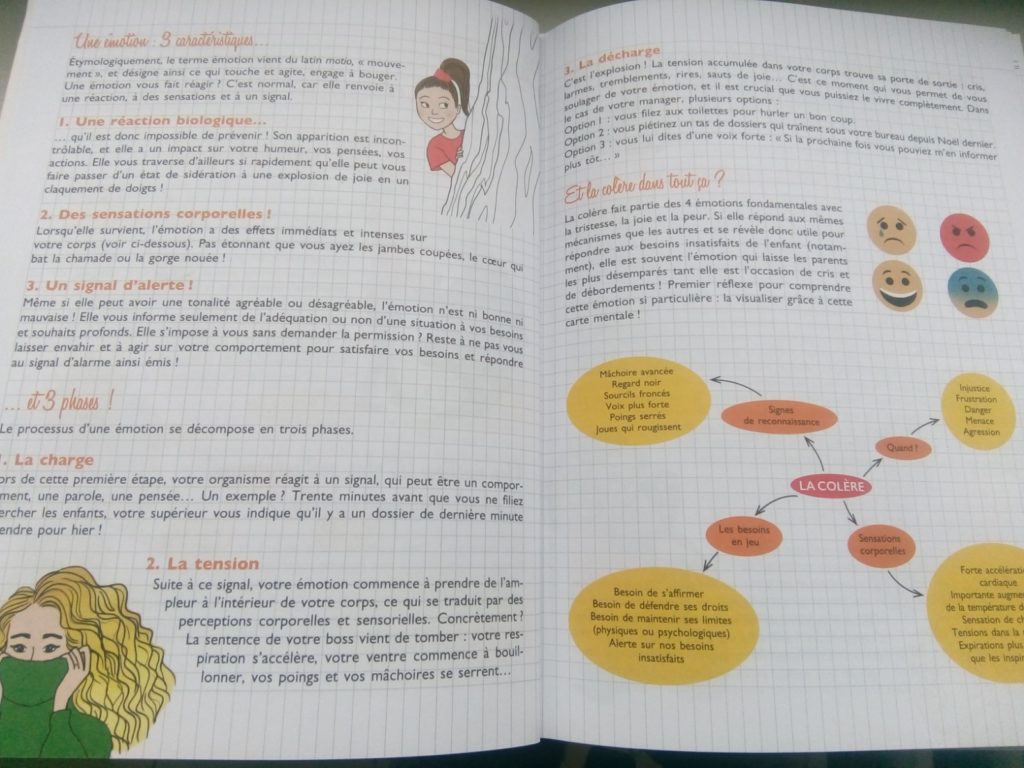 Une émotion : 3 caractéristiques...
Étymologiquement, le terme émotion vient du latin motio, « mouve-
ment », et désigne ainsi ce qui touche et agite, engage à bouger.
Une émotion vous fait réagir ? C'est normal, car elle renvoie à
une réaction, à des sensations et à un signal.
1. Une réaction biologique...
... qu'il est donc impossible de prévenir ! Son apparition est incon-
trôlable, et elle a un impact sur votre humeur, vos pensées, vos
actions. Elle vous traverse d'ailleurs si rapidement qu'elle peut vous
faire passer d'un état de sidération à une explosion de joie en un
claquement de doigts !
2. Des sensations corporelles !
Lorsqu'elle survient, l'émotion a des effets immédiats et intenses sur
votre corps (voir ci-dessous). Pas étonnant que vous ayez les jambes coupées, le cœur qui
bat la chamade ou la gorge nouée !
3. Un signal d'alerte !
Même si elle peut avoir une tonalité agréable ou désagréable, l'émotion n'est ni bonne ni
mauvaise ! Elle vous informe seulement de l'adéquation ou non d'une situation à vos besoins
et souhaits profonds. Elle s'impose à vous sans demander la permission ? Reste à ne pas vous
laisser envahir et à agir sur votre comportement pour satisfaire vos besoins et répondre
au signal d'alarme ainsi émis !
... et 3 phases !
Le processus d'une émotion se décompose en trois phases.
1. La charge
ors de cette première étape, votre organisme réagit à un signal, qui peut être un compor-
ment, une parole, une pensée... Un exemple ? Trente minutes avant que vous ne filiez
ercher les enfants, votre supérieur vous indique qu'il y a un dossier de dernière minute
endre pour hier !
2. La tension
Suite à ce signal, votre émotion commence à prendre de l'am-
pleur à l'intérieur de votre corps, ce qui se traduit par des
perceptions corporelles et sensorielles. Concrètement ?
La sentence de votre boss vient de tomber : votre res-
piration s'accélère, votre ventre commence à bouil-
lonner, vos poings et vos mâchoires se serrent...
3. La décharge
C'est l'explosion ! La tension accumulée dans votre corps trouve sa porte de sortie : cris,
larmes, tremblements, rires, sauts de joie... C'est ce moment qui vous permet de vous
soulager de votre émotion, et il est crucial que vous puissiez le vivre complètement. Dans
le cas de votre manager, plusieurs options :
Option 1 : vous filez aux toilettes pour hurler un bon coup.
Option 2 : vous piétinez un tas de dossiers qui traînent sous votre bureau depuis Noël dernier.
Option 3 : vous lui dites d'une voix forte : « Si la prochaine fois vous pouviez m'en informer
plus tôt... »
Et la colère dans tout ça ?
La colère fait partie des 4 émotions fondamentales avec
la tristesse, la joie et la peur. Si elle répond aux mêmes
mécanismes que les autres et se révèle donc utile pour
répondre aux besoins insatisfaits de l'enfant (notam-
ment), elle est souvent l'émotion qui laisse les parents
les plus désemparés tant elle est l'occasion de cris et
de débordements ! Premier réflexe pour comprendre
cette émotion si particulière : la visualiser grâce à cette
carte mentale !
Mâchoire avancée
Regard noir
Sourcils froncés
Voix plus forte
Poings serrés
Joues qui rougissent
Signes
de reconnaissance
Injustice
Frustration
Danger
Menace
Agression
Quand ?
LA COLÈRE
Les besoins
en jeu
Sensations
corporelles
Besoin de s'affirmer
Besoin de défendre ses droits
Besoin de maintenir ses limites
(physiques ou psychologiques)
Alerte sur nos besoins
insatisfaits
Forte accélérati
cardiaque
Importante augme
de la température d
Sensation de ch
Tensions dans la
Expirations plus
que les inspir